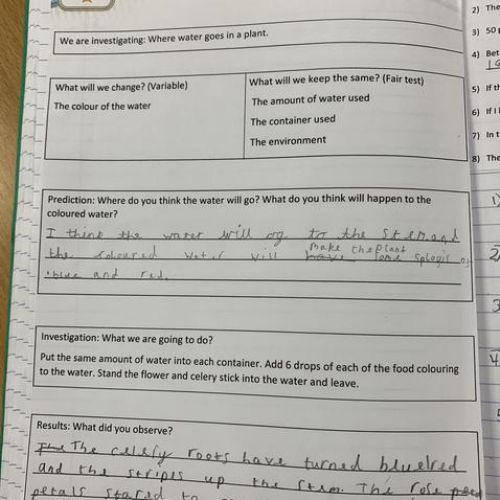 We are investigating: Where water goes in a plant.
What will we change? (Variable)
The colour of the water
What will we keep the same? (Fair test)
The amount of water used
The container used
The environment
Prediction: Where do you think the water will go? What do you think will happen to the
coloured water?
I think the water will og to the stem and
the coloured water will make the plant
have some splogis of
blue and red.
Investigation: What we are going to do?
Put the same amount of water into each container. Add 6 drops of each of the food colouring
to the water. Stand the flower and celery stick into the water and leave.
Results: What did you observe?
The celery roots have turned blue/red
and the stripes up the stem. The rose
petals stared to
2) The
3) 50
4) Bet
5) If th
6) If I
7) In t
8) The